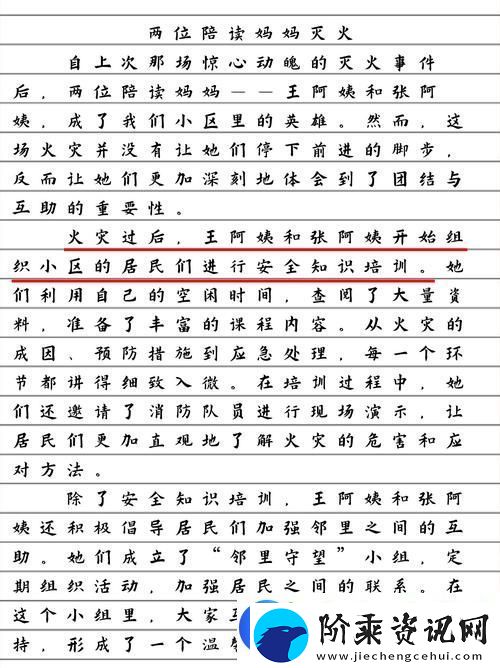 两位陪读妈妈灭火
自上次那场惊心动魄的灭火事件
后，两位陪读妈妈——王阿姨和张阿
姨，成了我们小区里的英雄。然而，这
场火灾并没有让她们停下前进的脚步，
反而让她们更加深刻地体会到了团结与
互助的重要性。
火灾过后，王阿姨和张阿姨开始组
织小区的居民们进行安全知识培训。她
们利用自己的空闲时间，查阅了大量资
料，准备了丰富的课程内容。从火灾的
成因、预防措施到应急处理，每一个环
节都讲得细致入微。在培训过程中，她
们还邀请了消防队员进行现场演示，让
居民们更加直观地了解火灾的危害和应
对方法。
除了安全知识培训，王阿姨和张阿
姨还积极倡导居民们加强邻里之间的互
助。她们成立了“邻里守望”小组，定
期组织活动，加强居民之间的联系。在
这个小组里，大家互
持，形成了一个温
阶乘资讯网
www.jiechengcehui.com